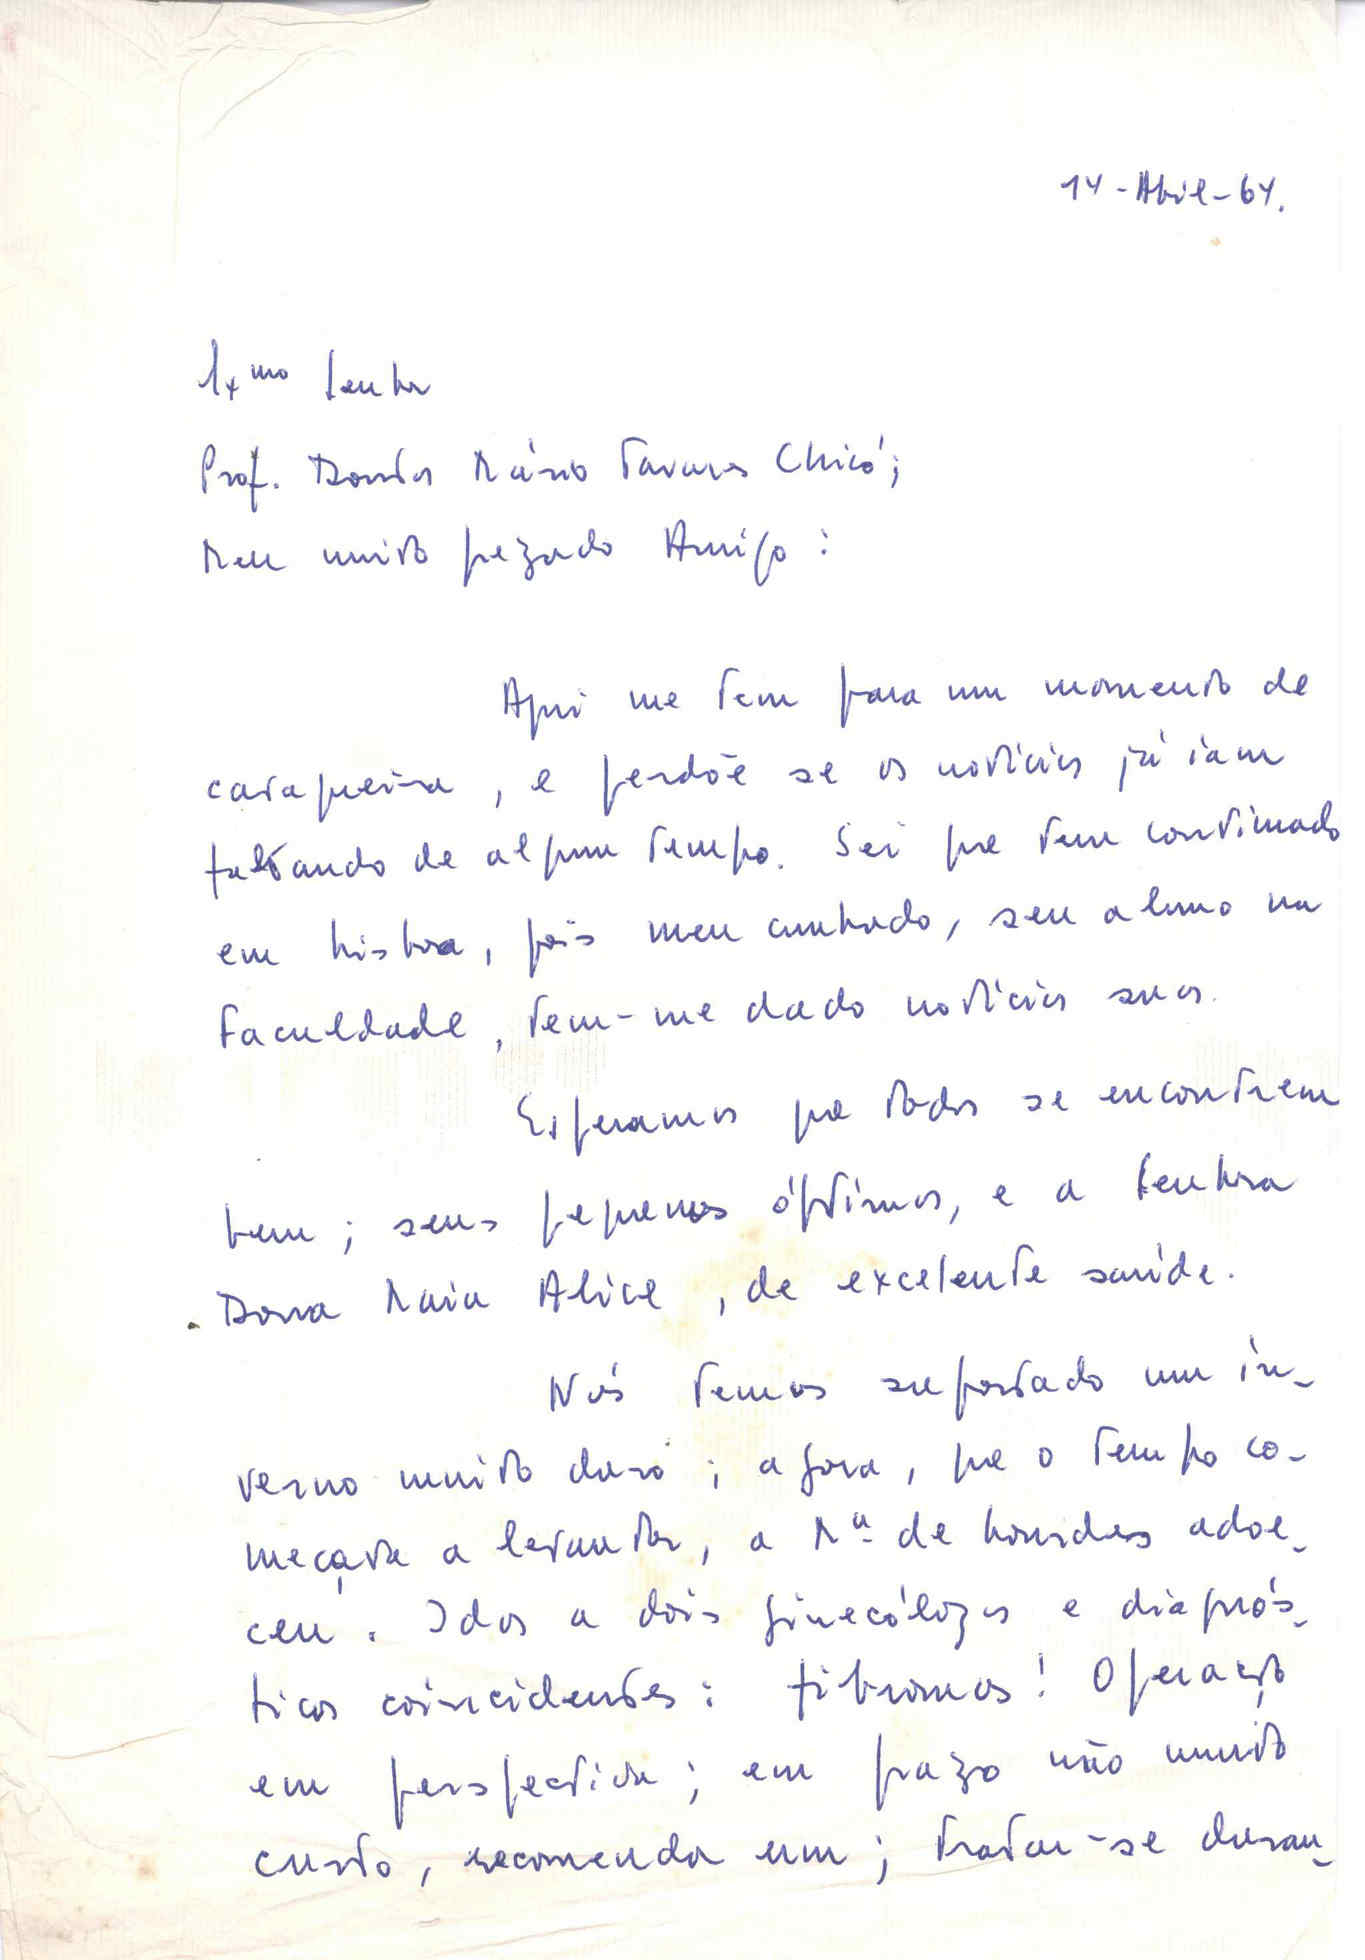 14-Abril-64.
Exmo Senhor
Prof. Doutor Mário Tavares Chicó;
Meu muito prezado Amigo:
Aqui me tem para um momento de
cavaqueira, e perdõe se as notícias já iam
faltando de algum tempo. Sei que tem continuado
em Lisboa, pois meu cunhado, seu aluno na
Faculdade, tem-me dado notícias suas.
Esperamos que todos se encontrem
bem; seus pequenos óptimos, e a Senhora
Dona Maria Alice, de excelente saúde.
Nós temos suportado um in-
verno muito duro; agora, que o tempo co-
meçava a levantar, a Mª de Lourdes adoe-
ceu. Idas a dois ginecólogos e diagnós-
ticos coincidentes: fibromas! Operação
em perspectiva; em prazo não muito
curto, recomenda um; tratar-se duran-